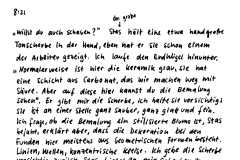 8:21
am grabe
„Willst du auch schauen?" Stas hält eine handgroße
Tonscherbe in der Hand, eben hat er sie schon einem
der Arbeiter gezeigt. Ich laufe den Erdhügel hinunter.
„Normalerweise ist hier die Keramik grau, sie hat
eine Schicht aus Carbonat, das wir machen weg mit
Säure. Aber auf diese hier kannst du die Bemalung
sehen". Er gibt mir die Scherbe, ich halte sie vorsichtig
sie ist an einer Stelle ganz sauber, ganz glatt und fein.
Ich frage, ob die Bemalung ein stilisierte Blume ist, Stas
bejaht, erklärt aber, dass die Dekoration bei den
Funden hier meistens aus geometrischen Formen besteht.
Linien, Wellen, konzentrische Kreise. Ich gebe die Scherbe